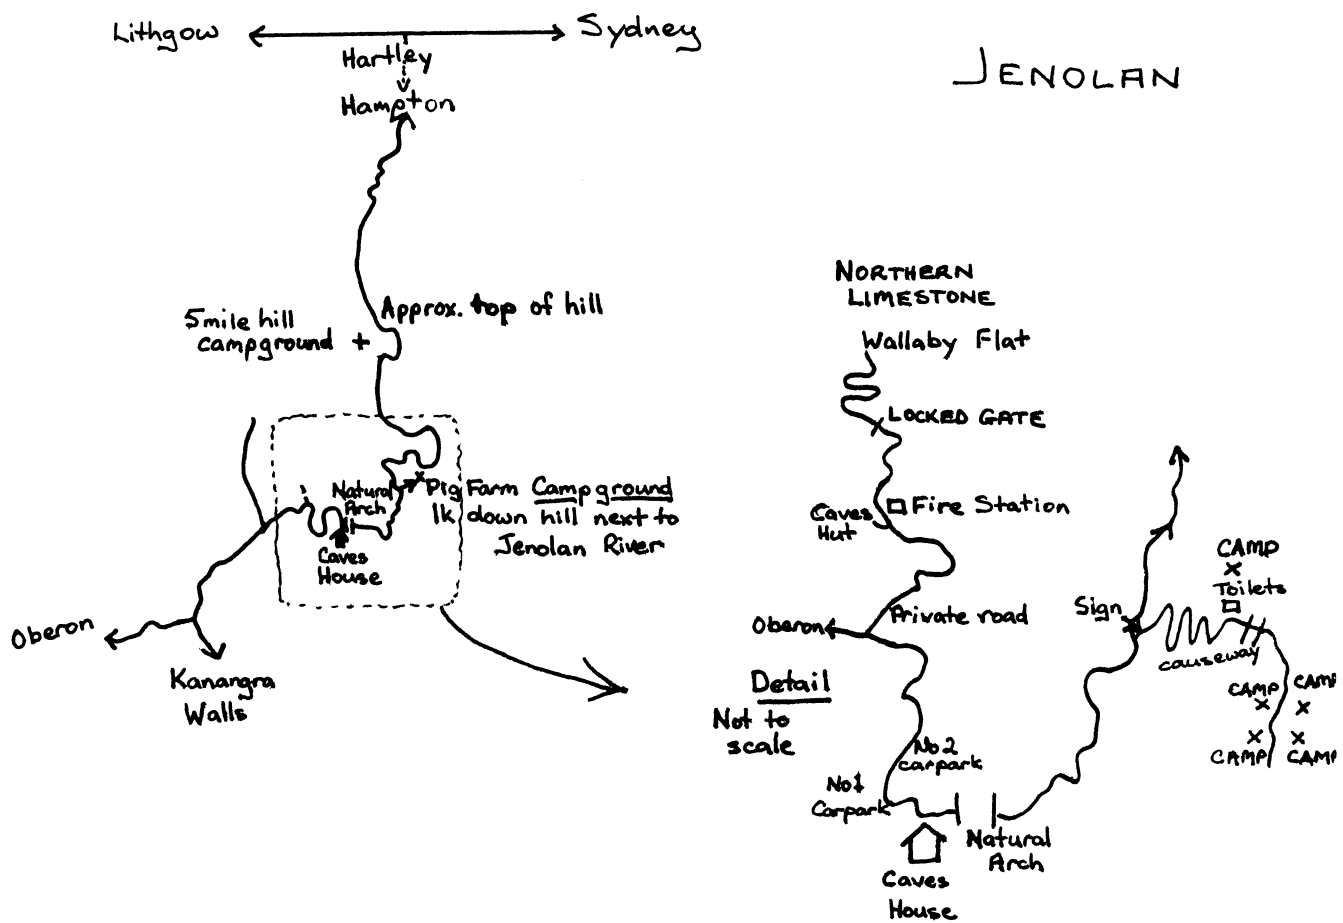 Lithgow
Sydney
Hartley
Hampton
JENOLAN
Approx. top of hill
5mile hill
campground
Natural
Arch
Caves
House
Pig Farm Campground
1k down hill next to
Jenolan River
Oberon
Kanangra
Walls
NORTHERN
LIMESTONE
Wallaby Flat
LOCKED GATE
Fire Station
Caves
Hut
Private road
Oberon
Detail
Not to
scale
No2
carpark
No1
Carpark
Natural
Arch
Caves
House
Sign
CAMP
Toilets
causeway
CAMP
CAMP
CAMP
CAMP